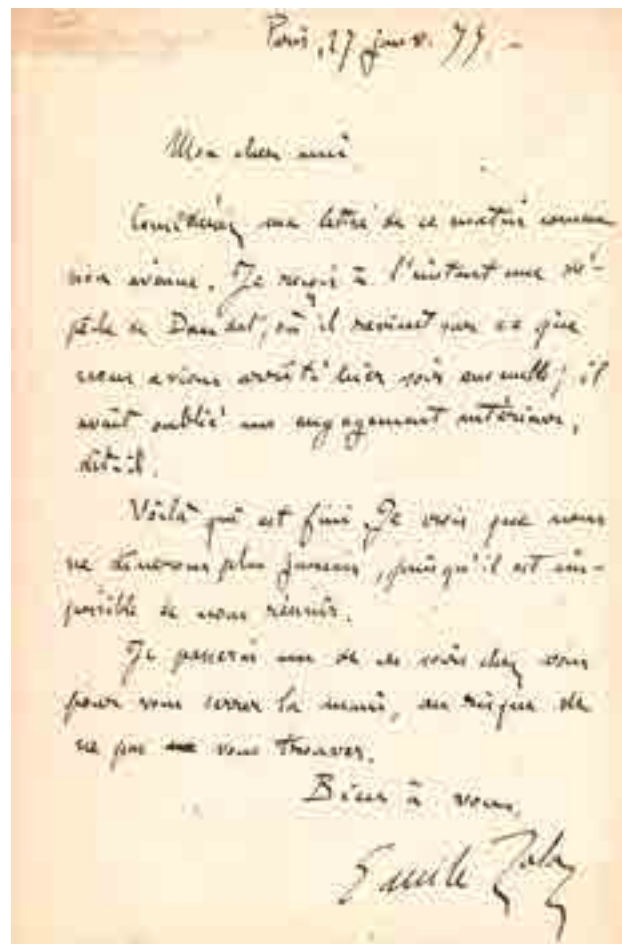 Paris, 27 janv. 77. -
Mon cher ami
Considérez ma lettre de ce matin comme
non avenue. Je reçois à l'instant une dé-
pêche de Daudet, où il revient sur ce que
nous avions arrêté hier soir ensemble; il
avait oublié un engagement antérieur,
dit-il.
Voilà qui est fini. Je crois que nous
ne dînerons plus jamais, puisqu'il est im-
possible de nous réunir.
Je passerai un de ces soirs chez vous
pour vous serrer la main, au risque de
ne pas vous trouver.
Bien à vous.
Emile Zola